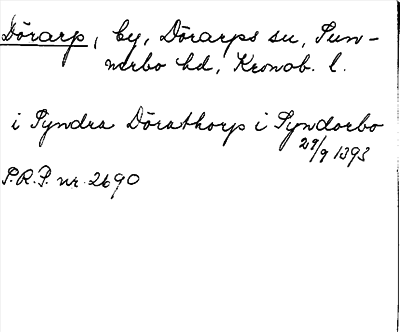 Dörarp, by, Dörarps sn, Sun-
nerbo hd, Kronob. l.
i Syndra Dörathorp i Syndorbo
29/9 1393
S.R.P. nr 2690